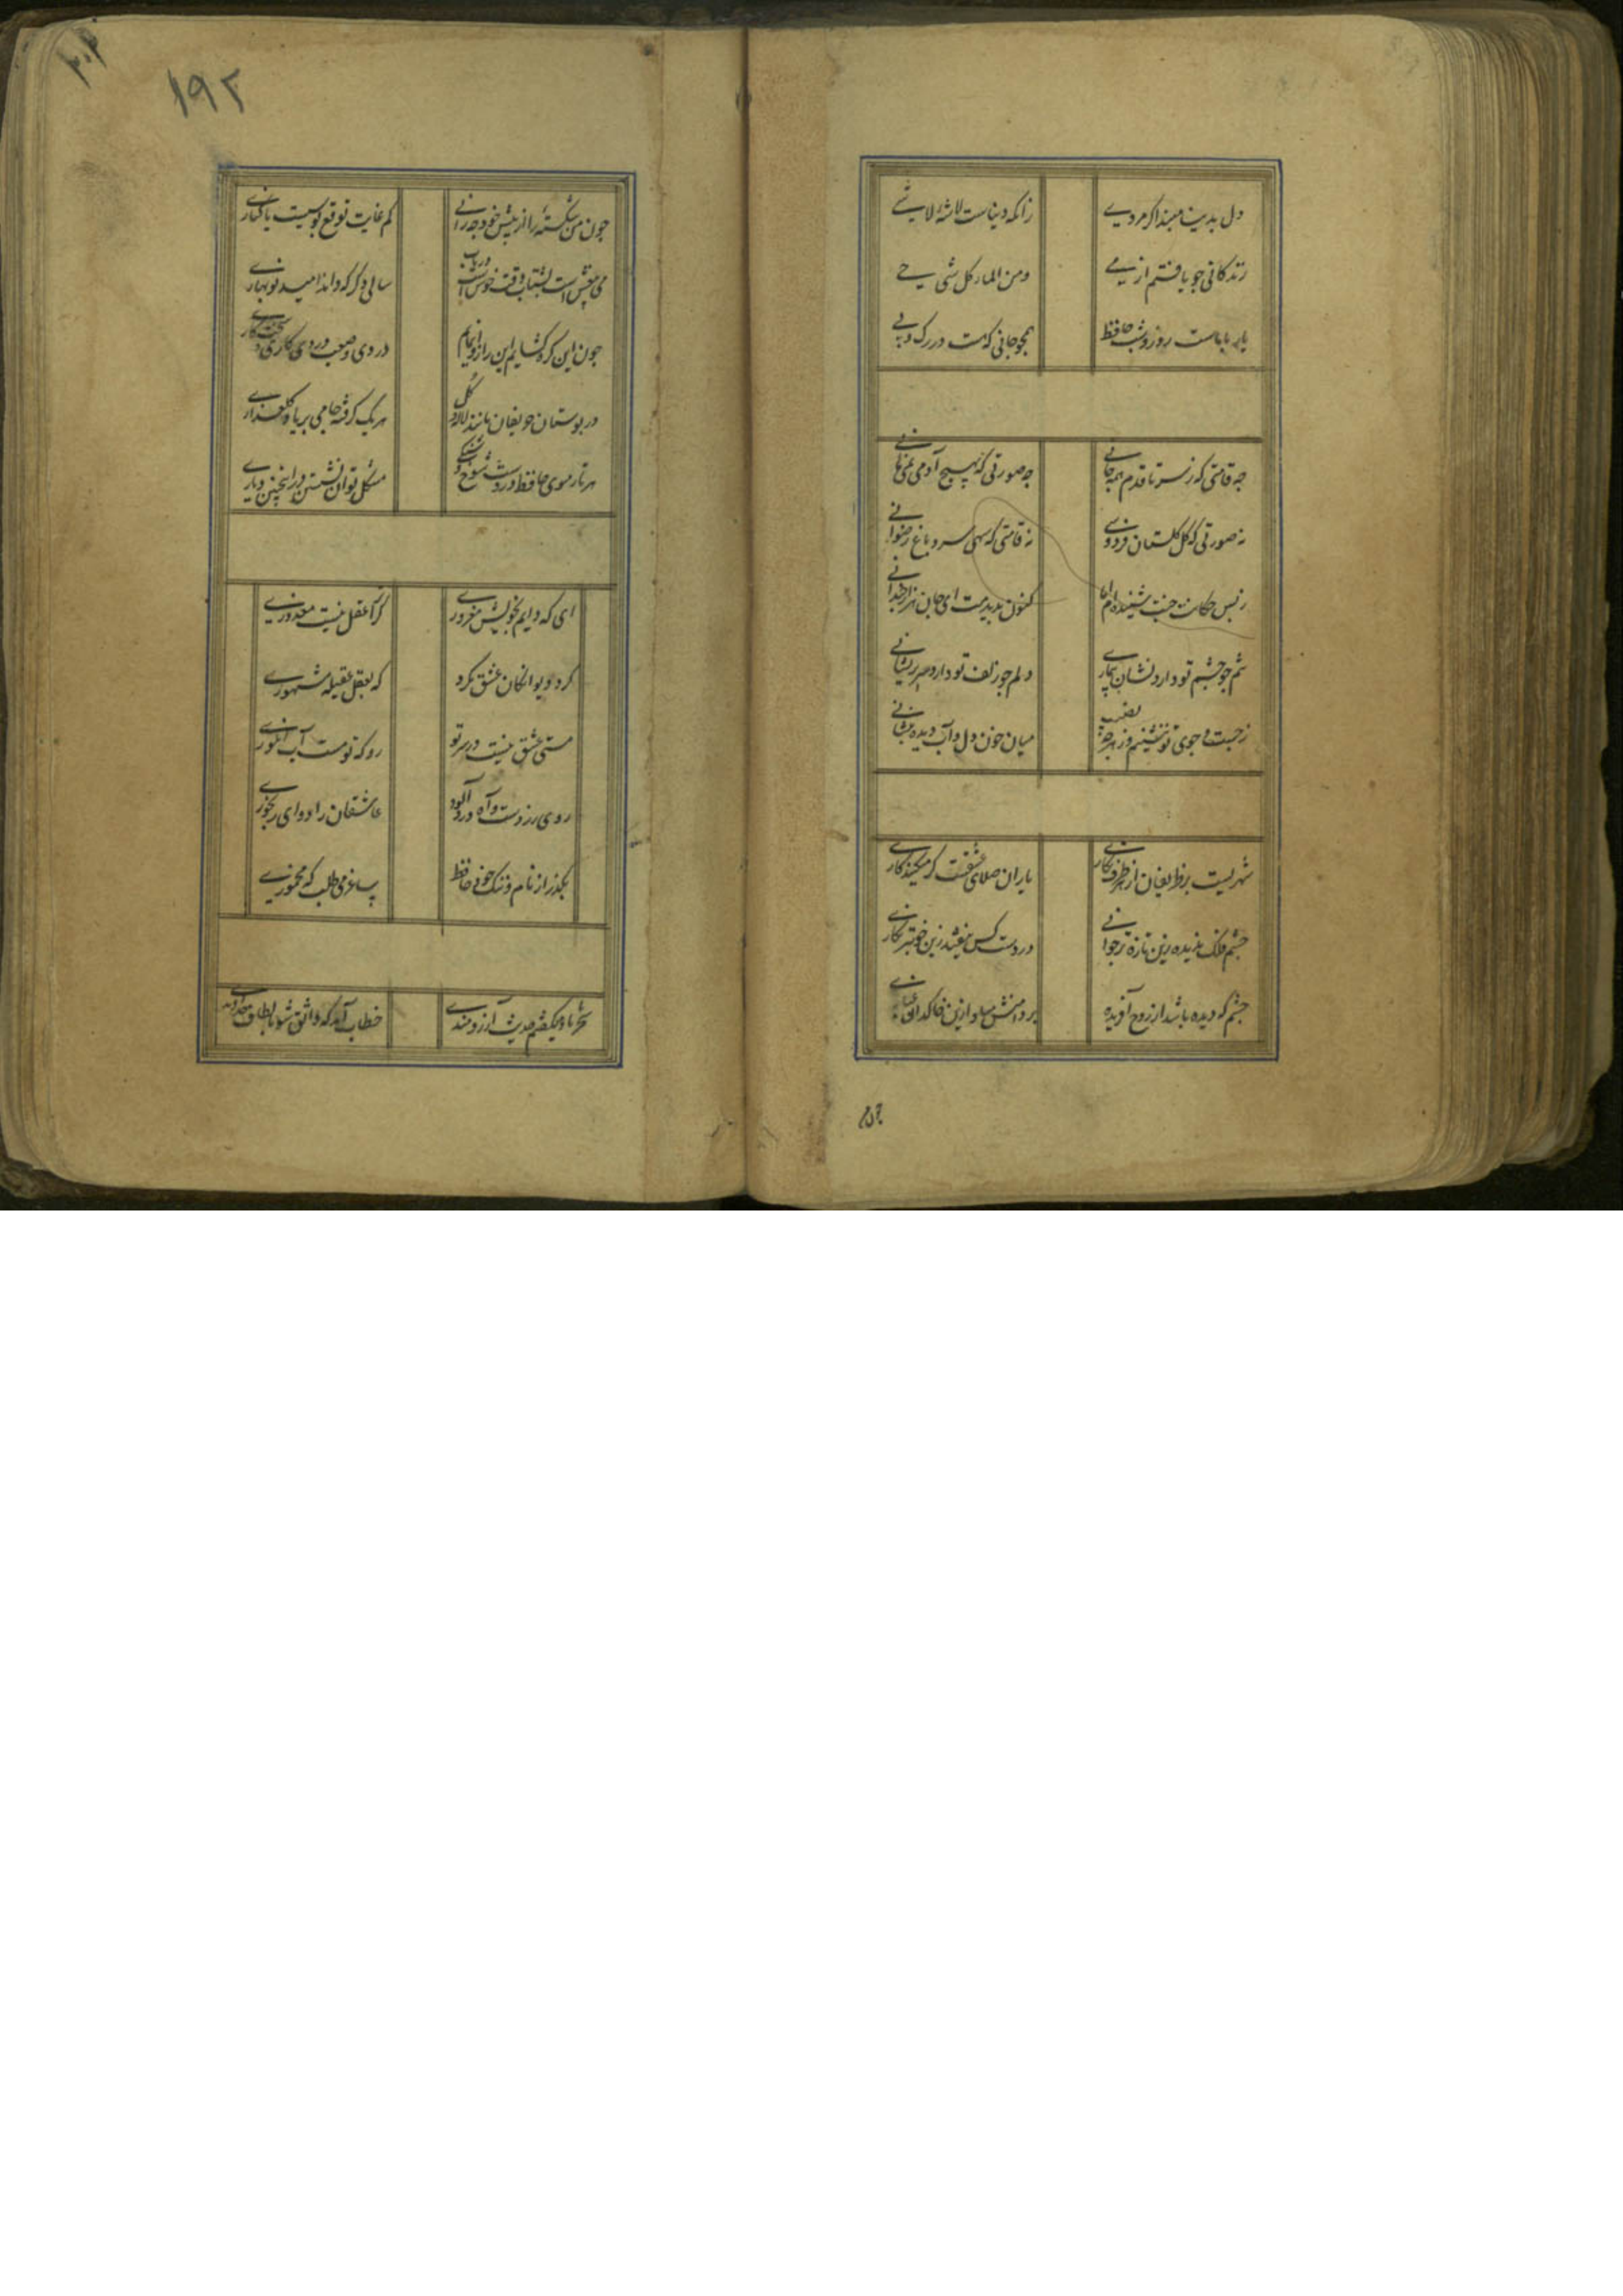 دل بدینی مبند اگر مردی
زانکه دنیاست لاشهٔ لاشی
زندکانی چو یافتم از می
ومن الماء کل شی حی
یار باماست روز وشب حافظ
همچو جانی که هست در رک وپی
چه قامتی که ز سر تا قدم همه جانی
چه صورتی که بهیچ آدمی نمی مانی
نه صورتی که کل کلستان فردوسی
نه قامتی که سهی سرو باغ رضوانی
زبس حکایت جنت شنیده ام اما
کنون بدیدمت ای جان هزار چندانی
تنم چو چشم تو دارد نشان بیماری
دلم چو زلف تو دارد سر پریشانی
زجست وجوی تو ننشینم وز هرچه نصیب
میان خون دل وآب دیده بنشانی
شهریست پر ظریفان از هر طرف نکاری
یاران صلای عشقست کر میکنید کاری
چشم فلک ندیده زین تازه تر جوانی
در دست کس نیفتد زین خوبتر نکاری
چشم که دیده باشد از روح آفریده
بر دامنش مبادا زین خاکدان غباری
چون
۳۰۳
۱۹۲
چون من شکسته را از پیش خود چه رانی
کم غایت توقع بوسیست یا کناری
می بیغش است بشتاب وقت خوش است دریاب
سالی دکر که داند امید نوبهاری
چون این کره کشایم این راز وانمایم
دردی وصعب دردی کاری وسخت کاری
در بوستان حریفان مانند لاله وکل
هریک کرفته جامی بر یاد کلعذاری
هر تار موی حافظ در دست شوخ وشنکی
مشکل توان نشستن در اینچنین دیاری
ای که دایم بخویش مغروری
کر ترا عقل نیست معذوری
کرد دیوانکان عشق مکرد
که بعقل عقیله مشهوری
مستی عشق نیست در سر تو
رو که تو مست آب انکوری
روی زردست وآه دردآلود
عاشقان را دوای رنجوری
بکذر از نام وننک خود حافظ
ساغر می طلب که مخموری
سحر با باد میکفتم حدیث آرزومندی
خطاب آمد که واثق شو بالطاف خداوندی